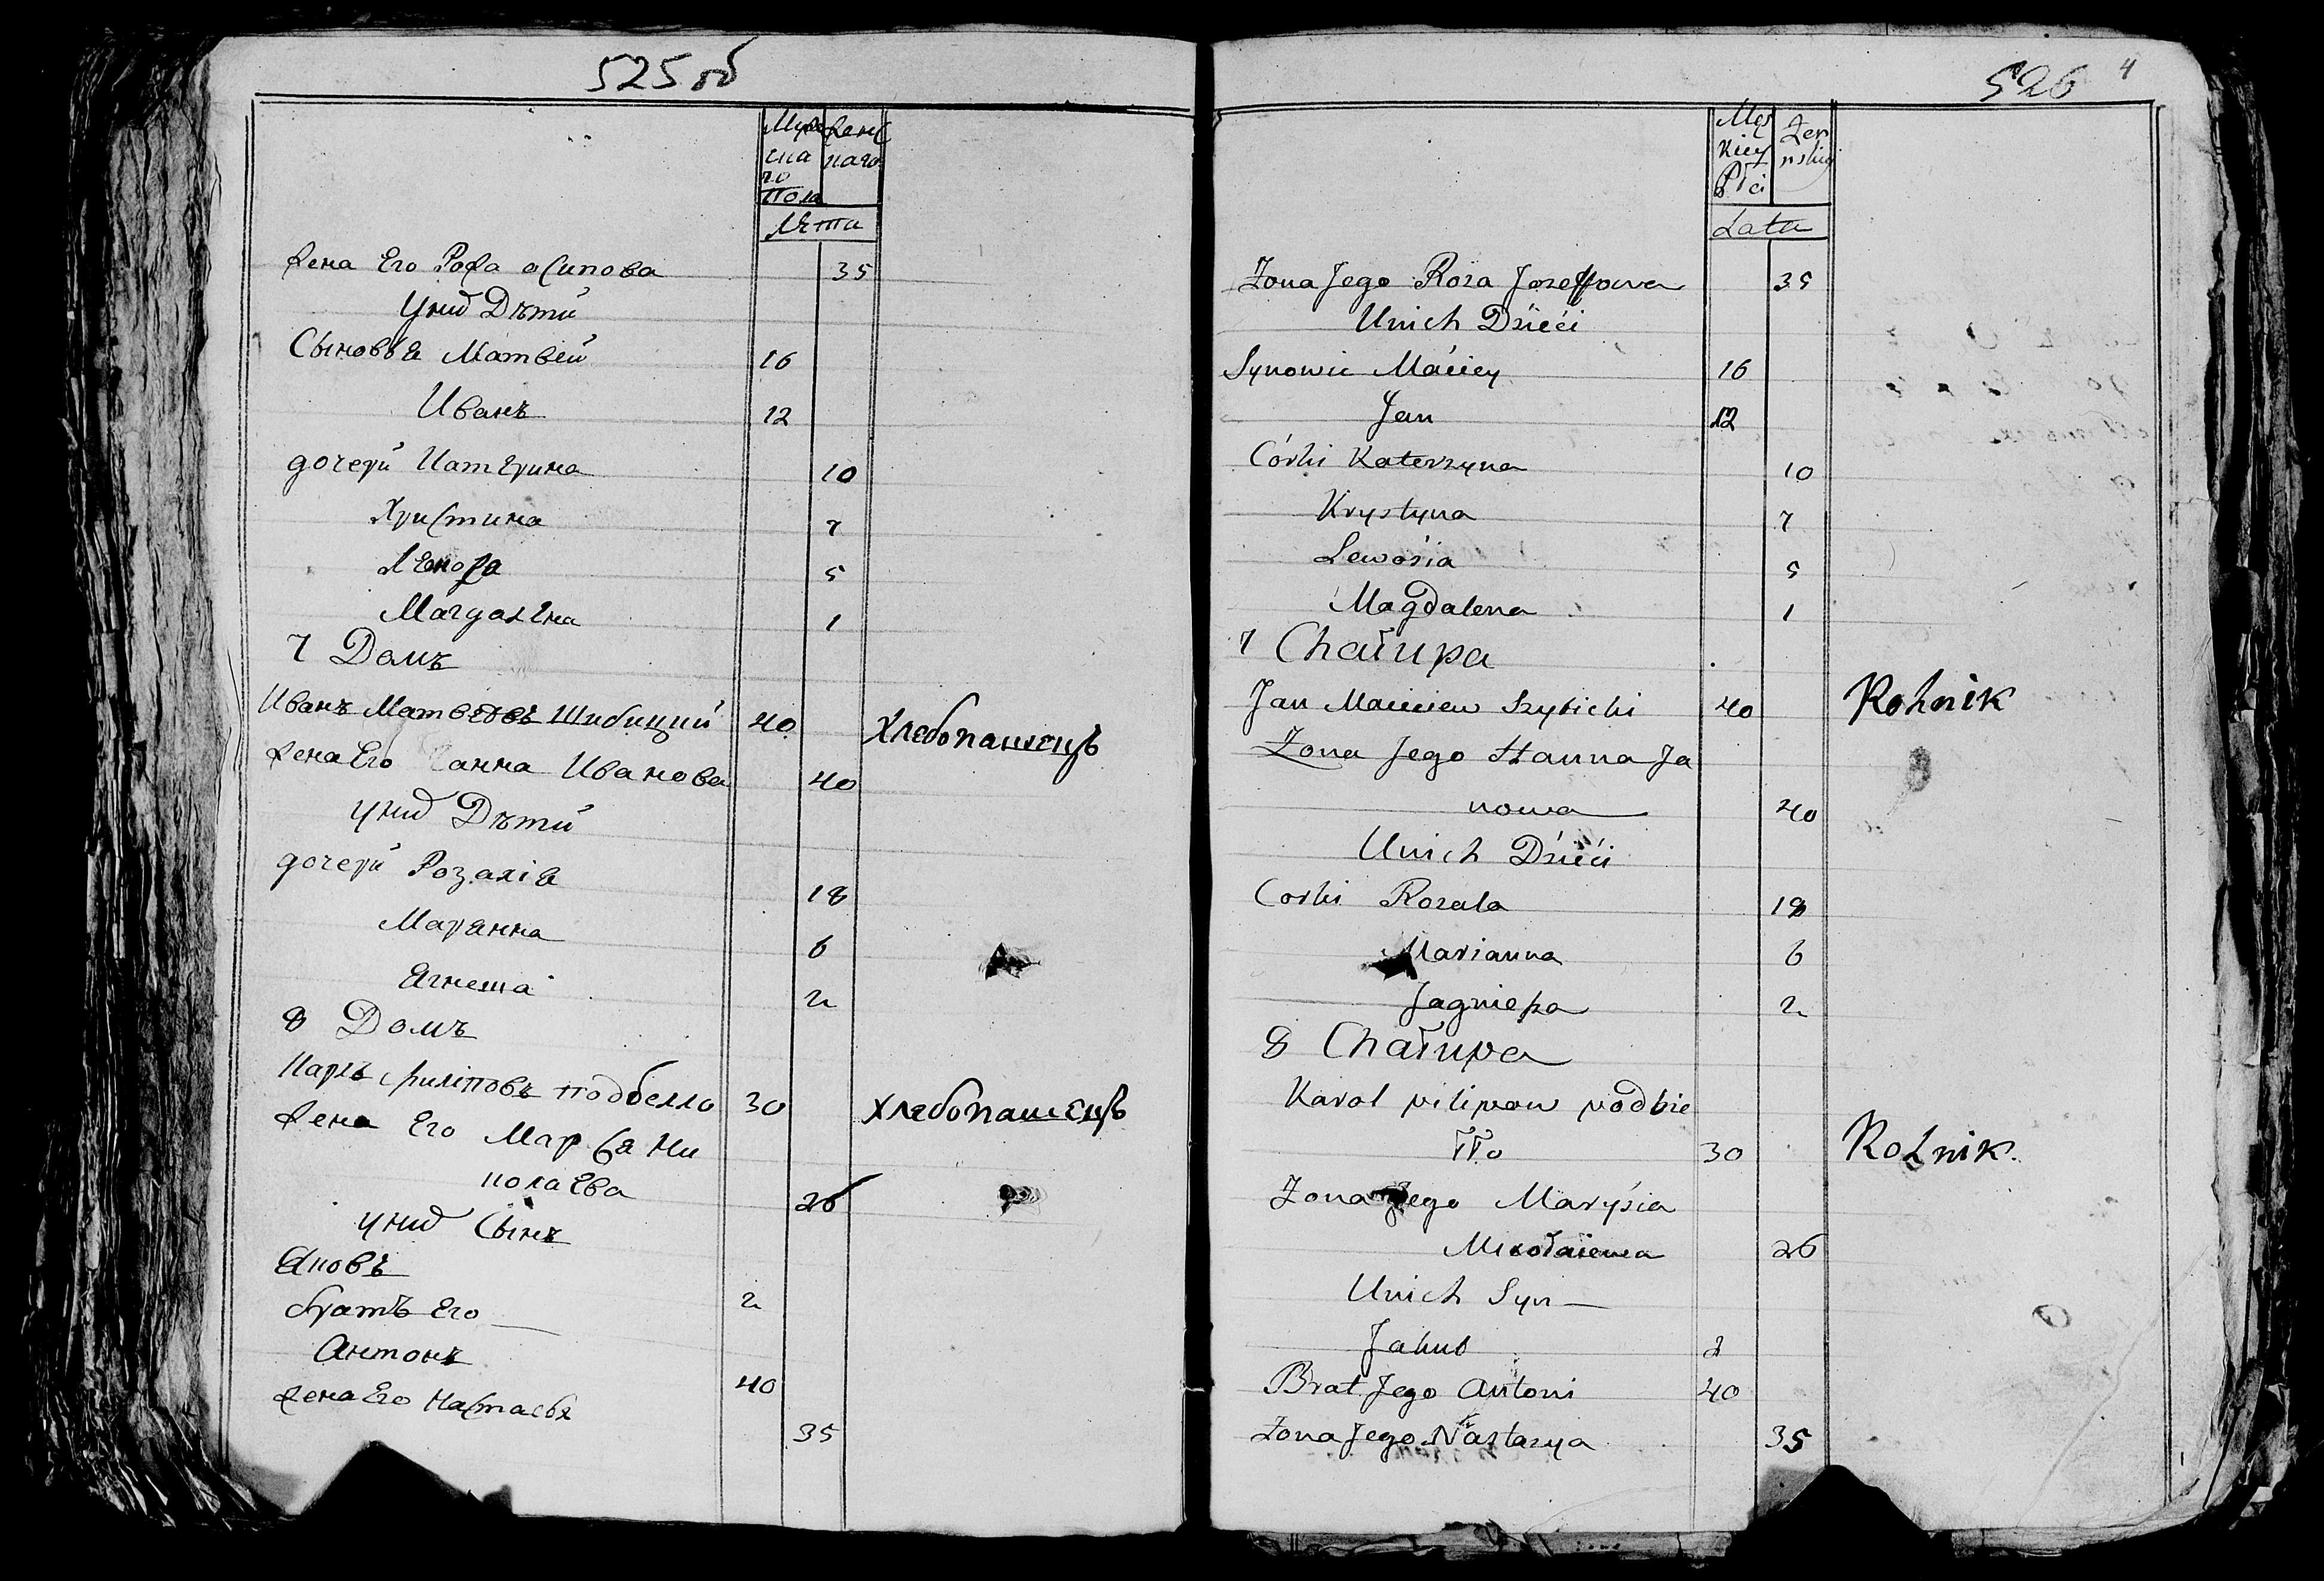 525 об
Мужескаго Пола
Женскаго
Лета
Жена Его Роза осипова 35
У них Дѣти
Сыновья Матвей 16
Иванъ 12
дочери Катерина 10
Христина 7
5
Магдалена 1
7 Домъ
Иванъ Матвеевъ Шибицкий 40 Хлебопашецъ
Жена Его Ганна Иванова 40
У них Дѣти
дочери Розалія 18
Марянна 6
Агнеша 2
8 Домъ
Карлъ филіповъ подбелло 30 Хлебопашецъ
Жена Его Марися Ни
колаева 26
У них Сынъ
Яковъ 2
братъ Его
Антонъ 40
Жена Его Настасья 35
526 4
Męskiey Płci
Żenskiey
Lata
Żona Jego Roza Jozeffowa 35
Unich Dzieći
Synowie Maciey 16
Jan 12
Córki Katerzyna 10
Krystyna 7
5
Magdalena 1
7 Chałupa
Jan Macieiew Szybicki 40 Rolnik
Żona Jego Hanna Ja
nowa 40
Unich Dzieći
Corki Rozala 18
Marianna 6
Jagnieṡzka 2
8 Chałupa
Karol pilipow podbie
łło 30 Rolnik.
Żona Jego Maryśia
Mikołaiewa 26
Unich Syn
Jakub 2
Brat Jego Antoni 40
Żona Jego Nastazya 35